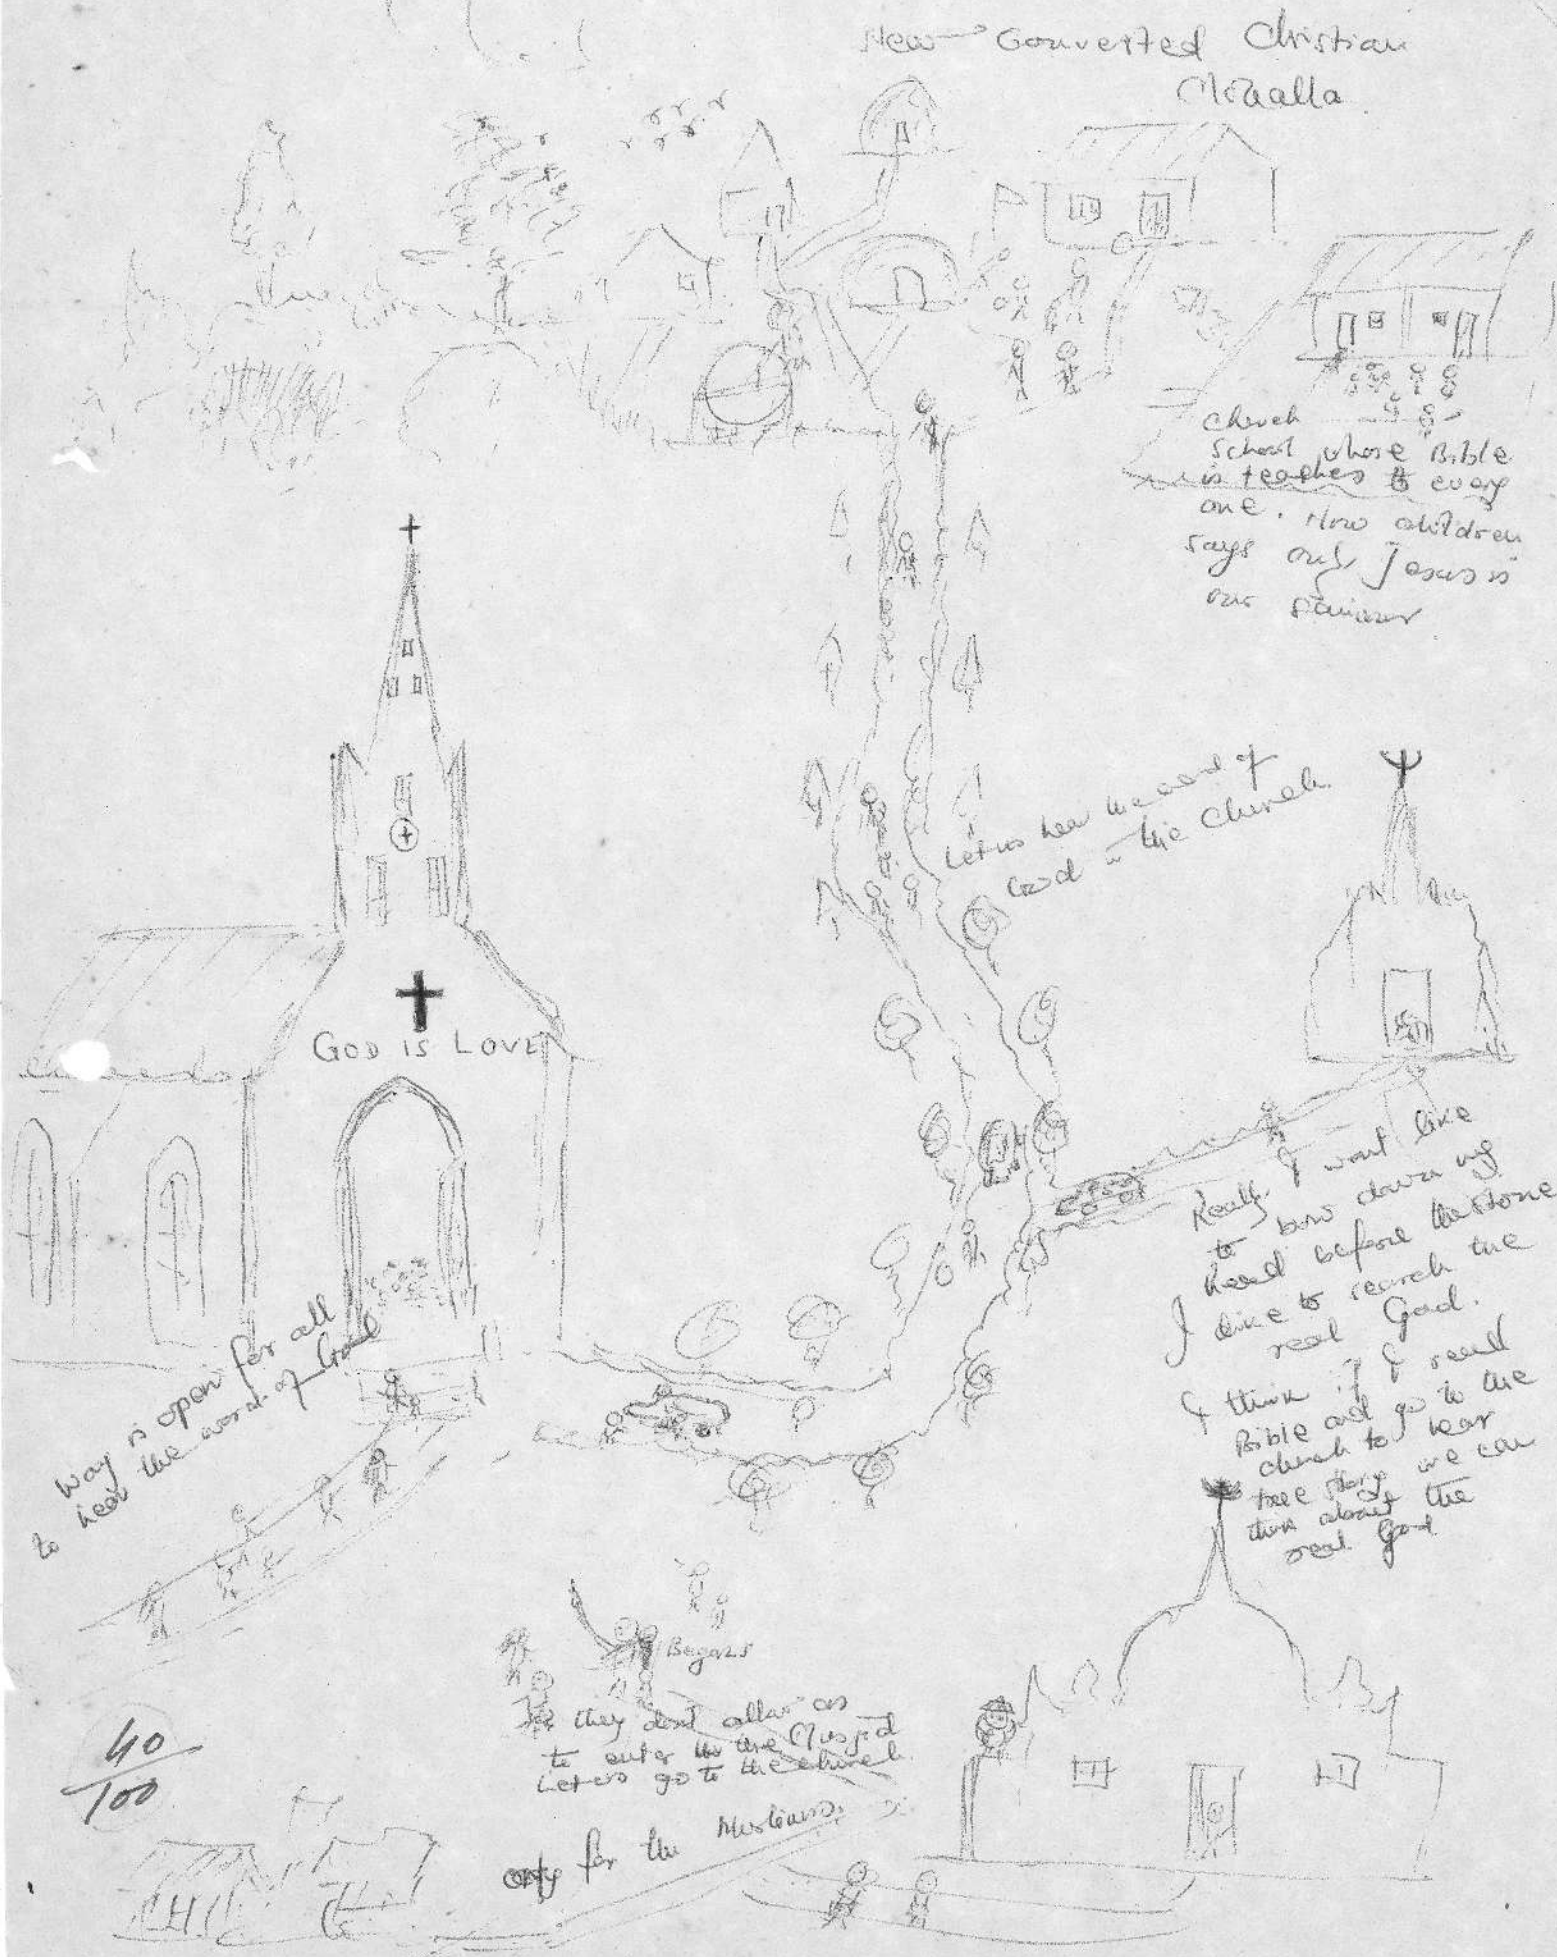 New Converted Christian
Mohalla
Church
School where Bible
is teaches to every
one. Now children
says only Jesus is
our
Let us hear the word of
God in the Church.
GOD IS LOVE
Way is open for all
to hear the word of God
Really I wont like
to bow down my
head before the stone
I like to search the
real God.
I think if I read
Bible and go to the
church to hear
story we can
then about the
real God
Begars
they dont allow us
to enter in the Musjid
Let us go to the church.
only for the Muslims.
40
100